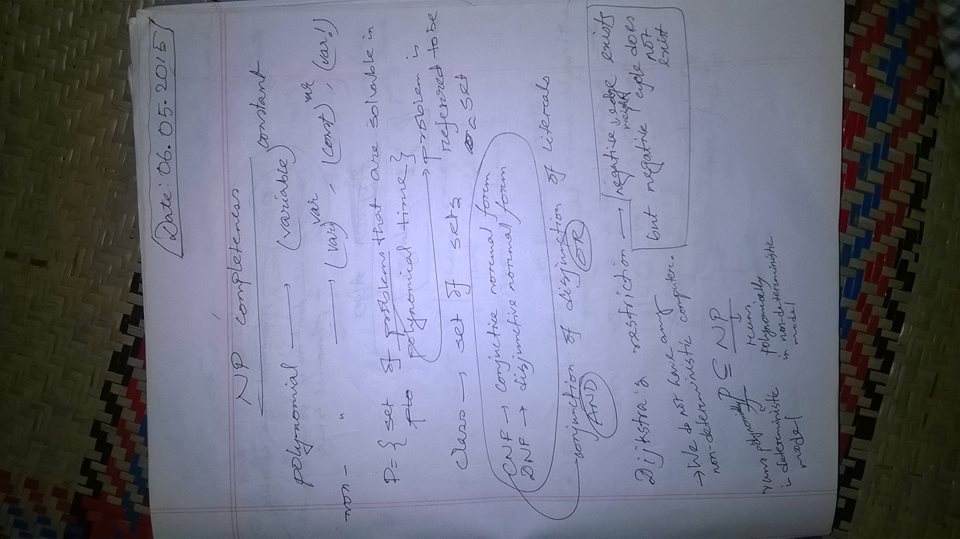 Date: 06.05.2015
NP completeness
polynomial → (variable)^constant
non- " → (var)^var, (const)^var, (var!)
P = { set of problems that are solvable in
polynomial time }
→ problem is
referred to be
a set
class → set of sets
CNF → conjuctive normal form
DNF → disjunctive normal form
conjunction of disjunction of literals
AND OR
Dijkstra's restriction → negative weight edge exists
but negative cycle does
not
exist
→ We do not have any
non-deterministic computer.
P ⊆ NP
runs polynomially
in deterministic
model
runs
polynomially
in non-deterministic
model